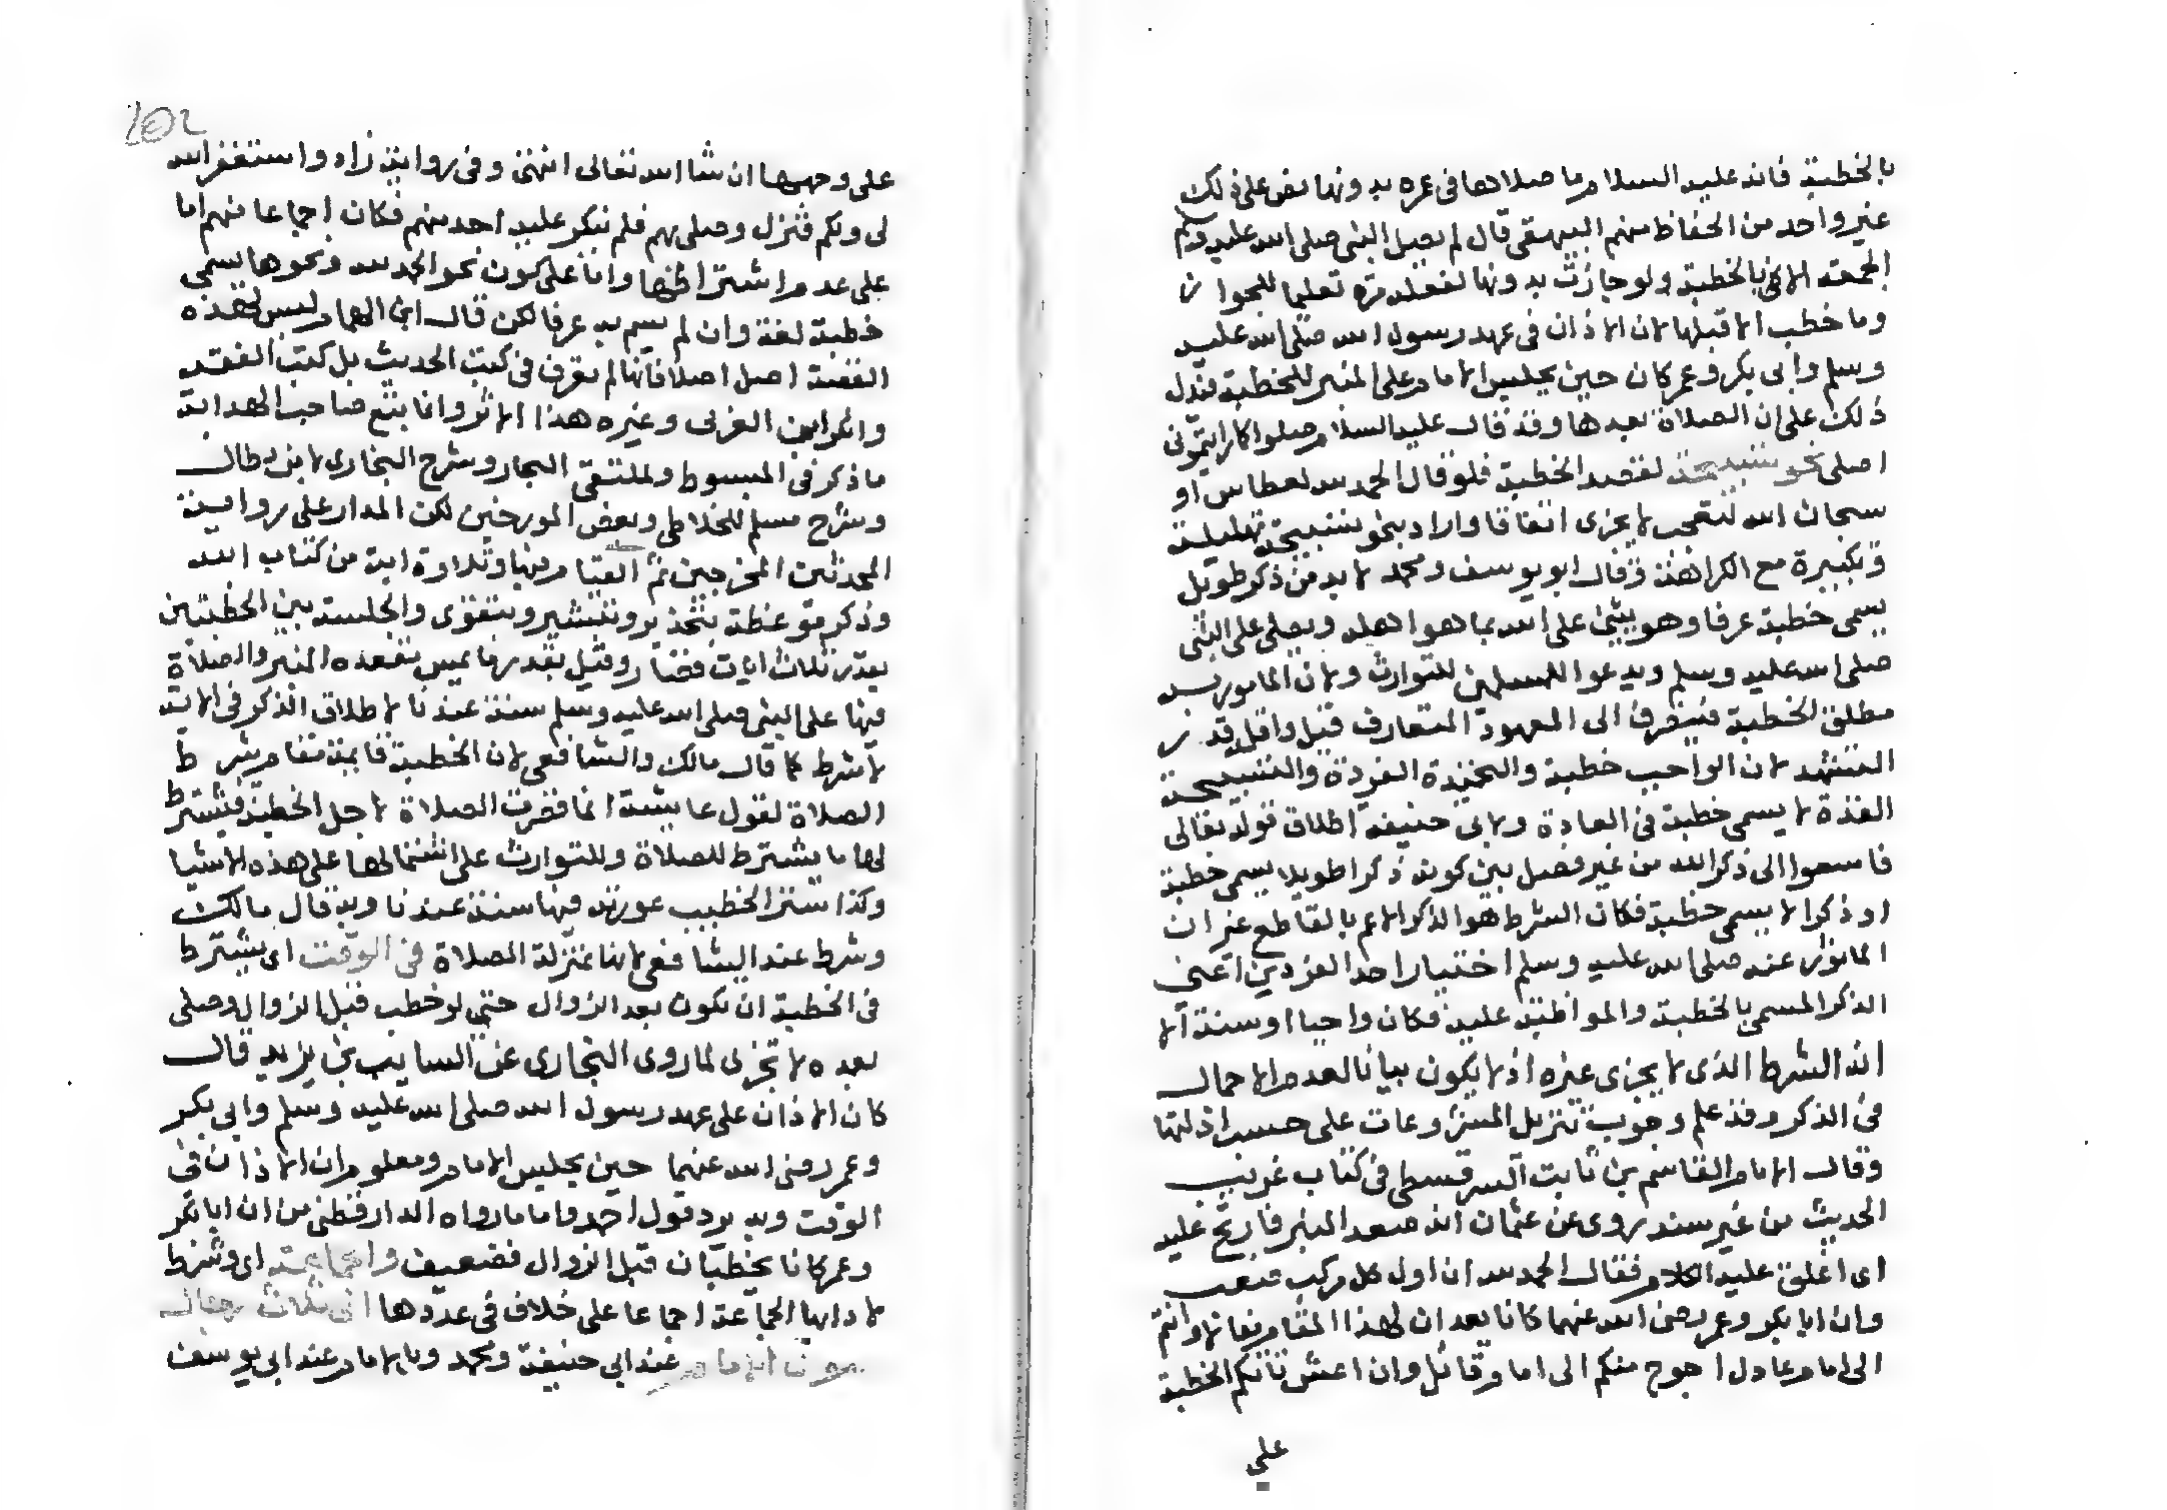 بالخطبة فانه عليه السلام ما صلاها في عمره بدونها نص على ذلك
غير واحد من الحفاظ منهم البيهقي قال لم يصل النبي صلى الله عليه وسلم
الجمعة الا بالخطبة ولو جازت بدونها لفعله مرة تعليما للجواز
وما خطب الا قبلها لان الاذان في عهد رسول الله صلى الله عليه
وسلم وابي بكر وعمر كان حين يجلس الامام على المنبر للخطبة فدل
ذلك على ان الصلاة بعدها وقد قال عليه السلام صلوا كما رايتموني
اصلي نحو تسبيحة لقصد الخطبة فلو قال الحمد لله لعطاس او
سبحان الله لتعجب لا يجزى اتفاقا واراد بنحو تسبيحة تهليلة
وتكبيرة مع الكراهة وقال ابو يوسف ومحمد لا بد من ذكر طويل
يسمى خطبة عرفا وهو يثنى على الله بما هو اهله ويصلى على النبي
صلى الله عليه وسلم ويدعو اللمسلمين للتوارث ولان المامور به
مطلق الخطبة فينصرف الى المعهودة المتعارف قيل واقله قدر
التشهد لان الواجب خطبة والتحميدة الفردة والتسبيحة
الفذة لا يسمى خطبة في العادة ولابي حنيفة اطلاق قوله تعالى
فاسعوا الى ذكر الله من غير فصل بين كونه ذكرا طويلا يسمى خطبة
او ذكرا لا يسمى خطبة فكان الشرط هو الذكر الاعم بالقاطع غير ان
الماثور عنه صلى الله عليه وسلم اختيار احد الفردين اعنى
الذكر المسمى بالخطبة والمواظبة عليه فكان واجبا او سنة الا
انه الشرط الذى لا يجزى غيره اذ لا يكون بيانا لعدم الاجمال
في الذكر وقد علم وجوب تنزيل المشروعات على حسب ادلتها
وقال الامام القاسم بن ثابت السرقسطي في كتاب غريب
الحديث من غير سند روى عن عثمان انه صعد المنبر فارتج عليه
اى اغلق عليه الكلام فقال الحمد لله ان اول كل مركب صعب
وان ابا بكر وعمر رضى الله عنهما كانا يعدان لهذا المقام مقالا وانتم
الى امام عادل احوج منكم الى امام قائل وان اعش تاتكم الخطبة
على
على وجهها ان شا الله تعالى انتهى وفي رواية زاد واستغفر الله
لى ولكم فنزل وصلى بهم فلم ينكر عليه احد منهم فكان اجماعا منهم اما
على عدم اشتراطها واما على كون نحو الحمد لله ونحوها يسمى
خطبة لغة وان لم يسم به عرفا لكن قال ابن الهمام ليس لهذه
القصة اصل اصلا فانها لم تعرف في كتب الحديث بل كتب الفقه
وانكر ابن العربى وغيره هذا الاثر وانما يتبع صاحب الهداية
ما ذكر في المبسوط ولملتقى البحار وشرح البخاري لابن بطال
وشرح مسلم للخلاطي وبعض المورخين لكن المدار على رواية
المحدثين المخرجين ثم القيام فيها وتلاوة اية من كتاب الله
وذكر موعظة بتحذير وتبشير وبتقوى والجلسة بين الخطبتين
بقدر ثلاث ايات قصار وقيل بقدر ما يمس مقعده المنبر والصلاة
فيها على النبي صلى الله عليه وسلم سنة عندنا لاطلاق الذكر في الاية
لا شرط كما قال مالك والشافعى لان الخطبة قايمة مقام شرط
الصلاة لقول عايشة انما قصرت الصلاة لاجل الخطبة فيشترط
لها ما يشترط للصلاة وللتوارث على اشتمالها على هذه الاشيا
وكذا ستر الخطيب عورته فيها سنة عندنا وبه قال مالك
وشرط عند الشافعى لانها بمنزلة الصلاة في الوقت اى يشترط
في الخطبة ان تكون بعد الزوال حتى لو خطب قبل الزوال وصلى
بعده لا تجزى لما روى البخارى عن السايب بن يزيد قال
كان الاذان على عهد رسول الله صلى الله عليه وسلم وابى بكر
وعمر رضى الله عنهما حين يجلس الامام ومعلوم ان الاذان في
الوقت وبه يرد قول احمد واما ما رواه الدارقطني من ان ابا بكر
وعمر كانا يخطبان قبل الزوال فضعيف والجماعة اى وشرط
لادايها الجماعة اجماعا على خلاف في عددها اى ثلاث رجال
سوى الامام عند ابى حنيفة ومحمد وبالامام عند ابى يوسف